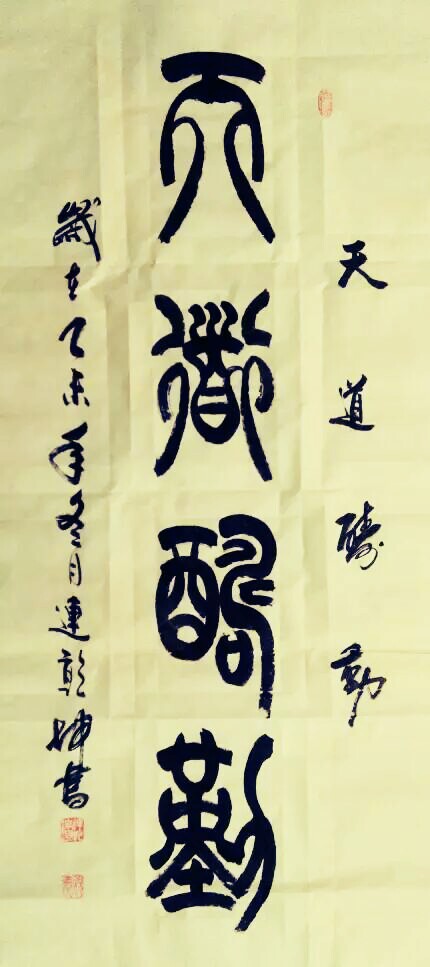 天道酬勤
天道酬勤
歲在乙未年冬月連乾坤書